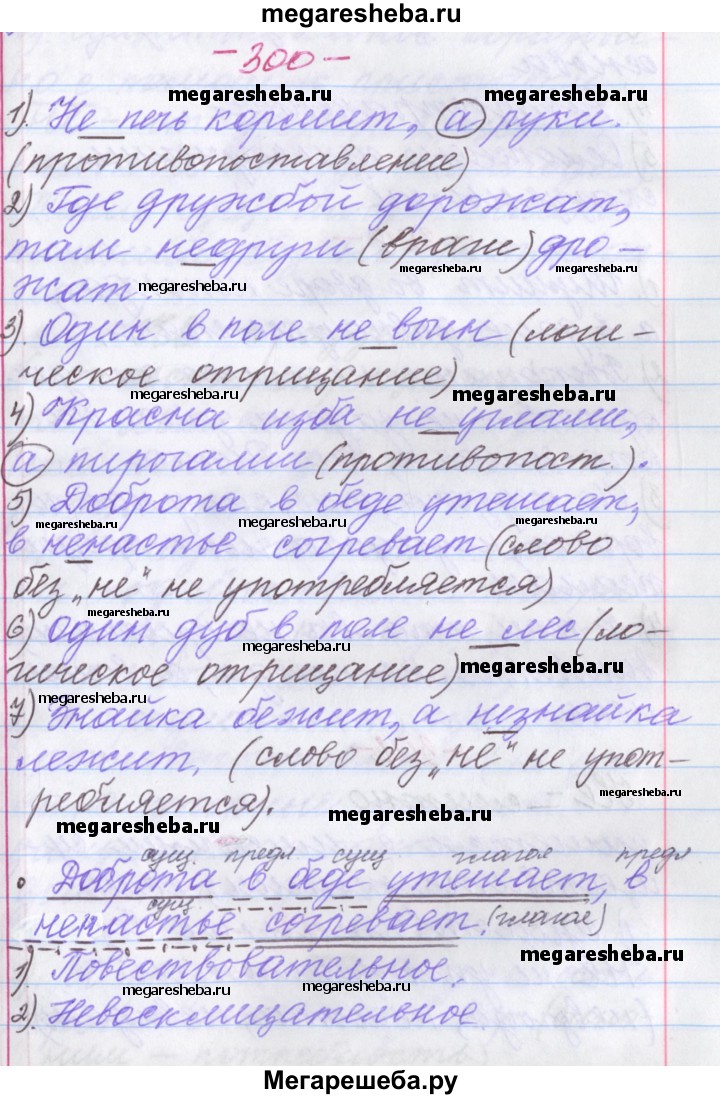 megaresheba.ru
-300-
megaresheba.ru megaresheba.ru
1). Не печь кормит, а руки.
(противопоставление)
2) Где дружбой дорожат,
там недруги (враги) дро-
megaresheba.ru megaresheba.ru
жат. megaresheba.ru
3). Один в поле не воин (логи-
ческое отрицание)
megaresheba.ru
4) Красна изба не углами,
а пирогами (противопост.).
5) Доброта в беде утешает,
megaresheba.ru megaresheba.ru megaresheba.ru
в ненастье согревает (слово
без „не" не употребляется)
megaresheba.ru
6) Один дуб в поле не лес (ло-
megaresheba.ru
гическое отрицание) megaresheba.ru
megaresheba.ru
7) Знайка бежит, а незнайка
лежит. (слово без „не" не упот-
ребляется). megaresheba.ru
megaresheba.ru megaresheba.ru
сущ. предл сущ глагол предл
Доброта в беде утешает, в
сущ.
ненастье согревает. (глагол)
megaresheba.ru
1) Повествовательное.
megaresheba.ru megaresheba.ru
2). Невосклицательное.
megaresheba.ru
Мегарешеба.ру